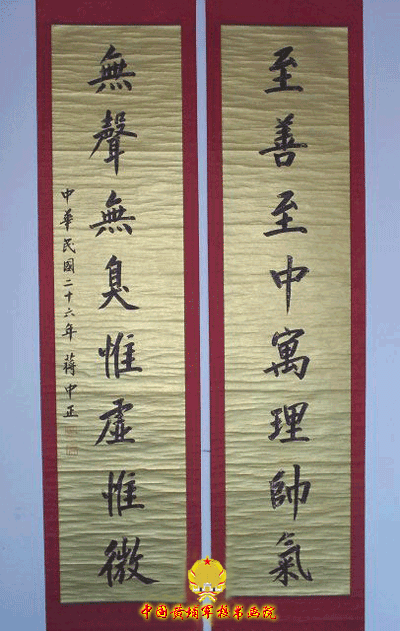 至善至中寓理帥氣
無聲無臭惟虛惟微
中華民國二十六年 蔣中正
中国黄埔军校书画院